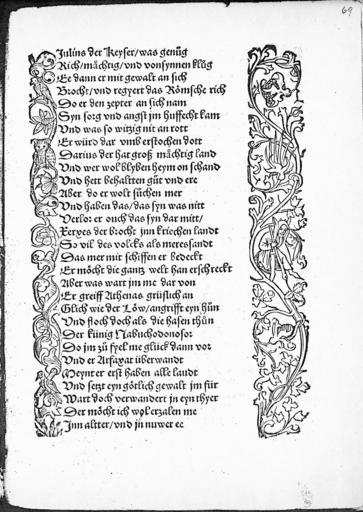 69
Julius der Keyser/was genůg
Rich/mächtig/vnd von synnen klůg
Ee dann er mit gewalt an sich
Brocht/vnd regyert das Römsche rich
Do er den zepter an sich nam
Syn sorg vnd angst jm huffecht kam
Vnd was so witzig nit an rott
Er würd dar vmb erstochen dott
Darius der hat groß mächtig land
Vnd wer wol blyben heym on schand
Vnd hett behaltten gůt vnd ere
Aber do er wolt sůchen mer
Vnd haben das/das syn was nitt
Verlor er ouch das syn dar mitt/
Xerxes der brocht jnn kriechen landt
So vil des volcks als meressandt
Das mer mit schiffen er bedeckt
Er möcht die gantz welt han erschreckt
Aber was wart jm me dar von
Er greiff Athenas grüslich an
Glich wie der Löw/angrifft eyn hůn
Vnd floch doch als die hasen thůn
Der künig Nabuchodonosor
Do jm zů fyel me glück dann vor
Vnd er Arfaxat überwandt
Meynt er erst haben alle landt
Vnd setzt eyn götlich gewalt jm für
Wart doch verwandert jn eyn thyer
Der möcht ich wol erzalen me
Jnn altter/vnd jn nuwer ee